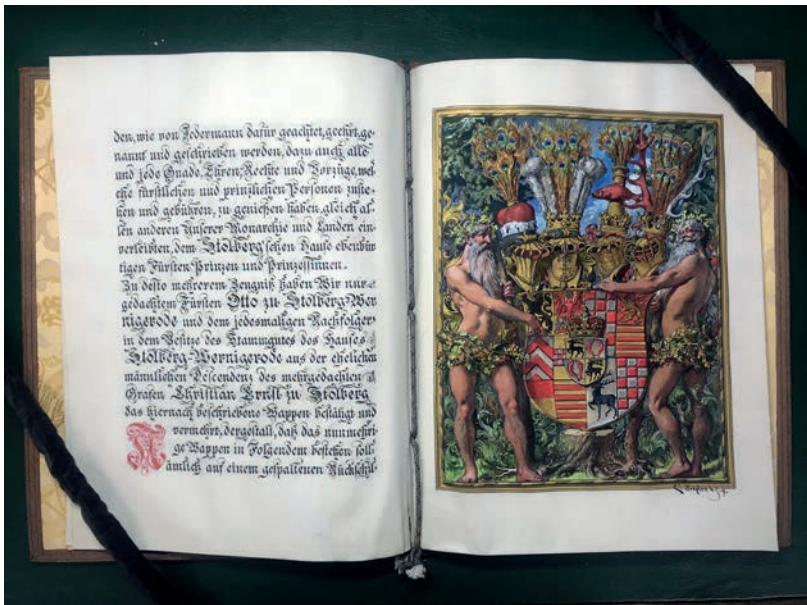 den, wie von Jedermann dafür geachtet, geehrt, ge-
nannt und geschrieben werden, dazu auch alle
und jede Gnade, Ehren, Rechte und Vorzüge, wel-
che fürstlichen und prinzlichen Personen zuste-
hen und gebühren, zu genießen haben, gleich al-
len anderen Unserer Monarchie und Landen ein-
verleibten, dem Stolberg'schen Hause ebenbür
tigen Fürsten Prinzen und Prinzessinnen.
Zu desto mehrerem Zeugniß haben Wir nur
gedachtem Fürsten Otto zu Stolberg-Wer
nigerode und dem jedesmaligen Nachfolger
in dem Besitze des Stammgutes des Hauses
Stolberg-Wernigerode aus der ehelichen
männlichen Descendenz des mehrgedachten
Grafen Christian Ernst zu Stolberg
das hiernach beschriebene Wappen bestätigt und
vermehrt, dergestalt, daß das nunmehri
ge Wappen in Folgendem bestehen soll:
Nämlich auf einem gespaltenen Rückschil-